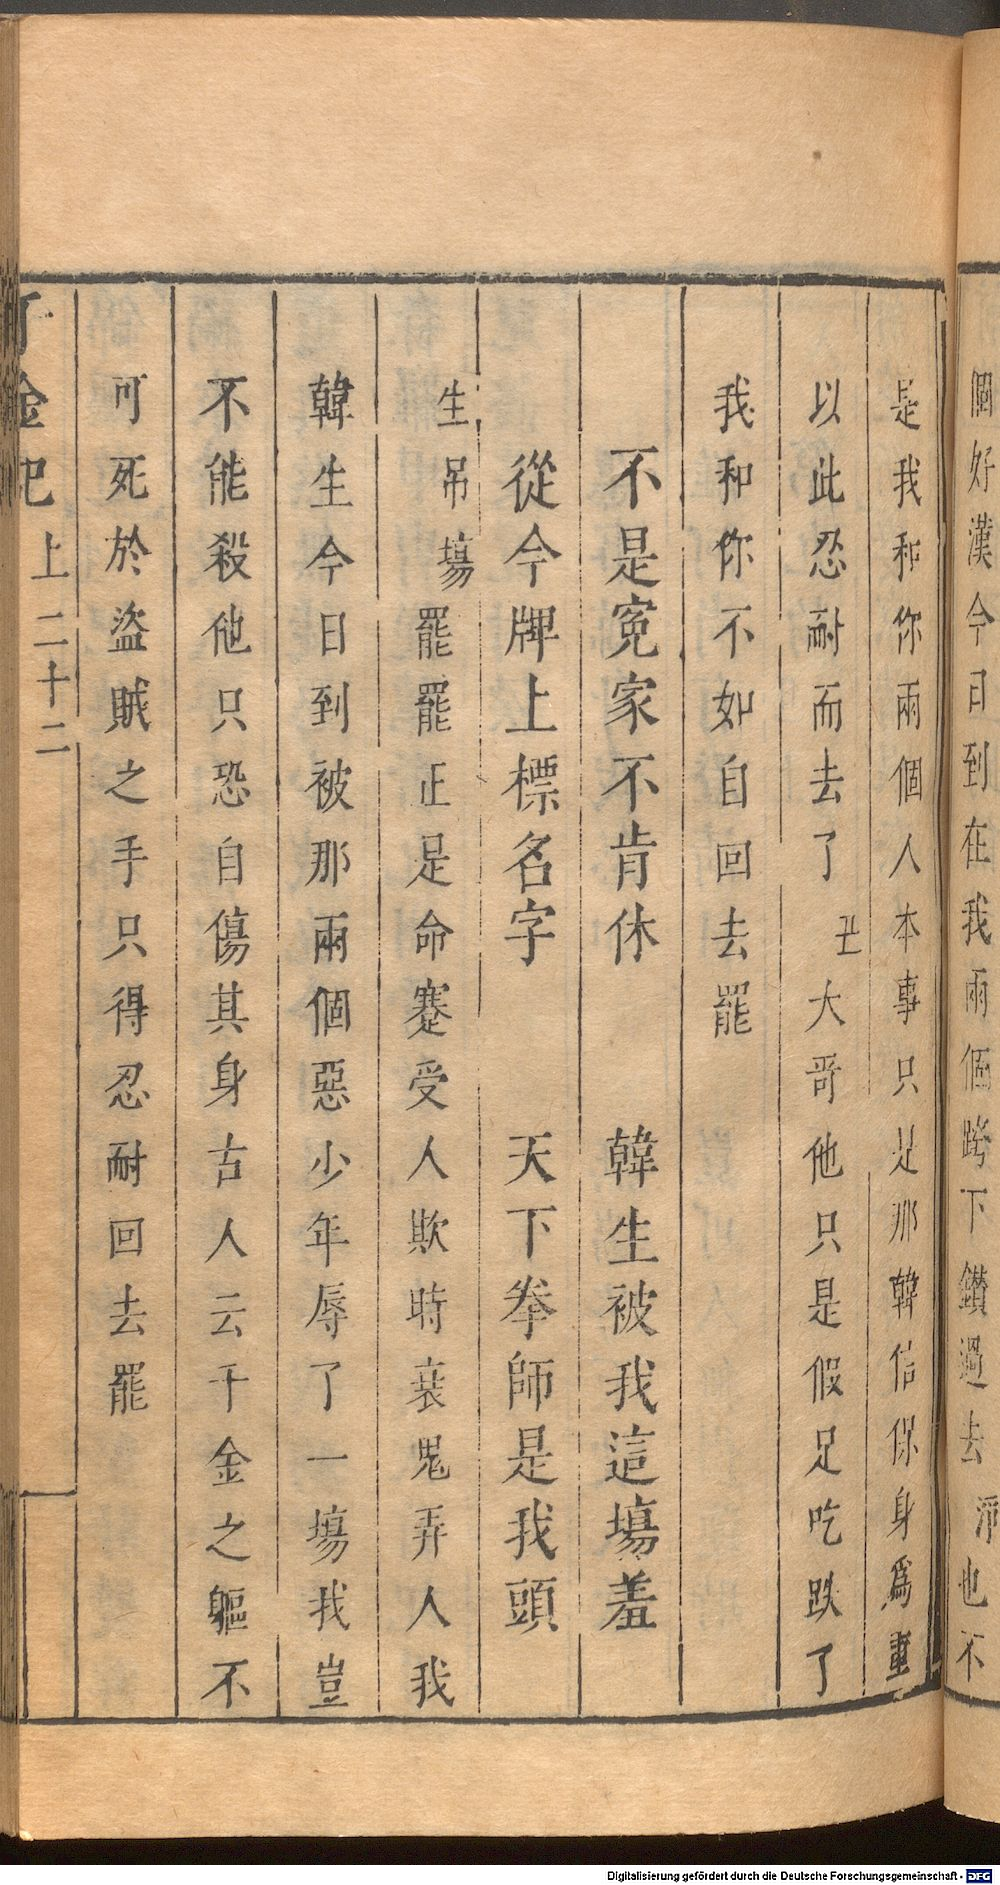 個好漢今日到在我兩個跨下鑚過去 淨也不
是我和你兩個人本事只是那韓信保身爲重
以此忍耐而去了 丑大哥他只是假足吃跌了
我和你不如自回去罷
不是寃家不肯休 韓生被我這塲羞
從今牌上標名字 天下拳師是我頭
生吊塲罷罷正是命蹇受人欺時衰鬼弄人我
韓生今日到被那兩個惡少年辱了一塲我豈
不能殺他只恐自傷其身古人云千金之軀不
可死於盜賊之手只得忍耐回去罷
千金記 上 二十二
Digitalisierung gefördert durch die Deutsche Forschungsgemeinschaft - DFG